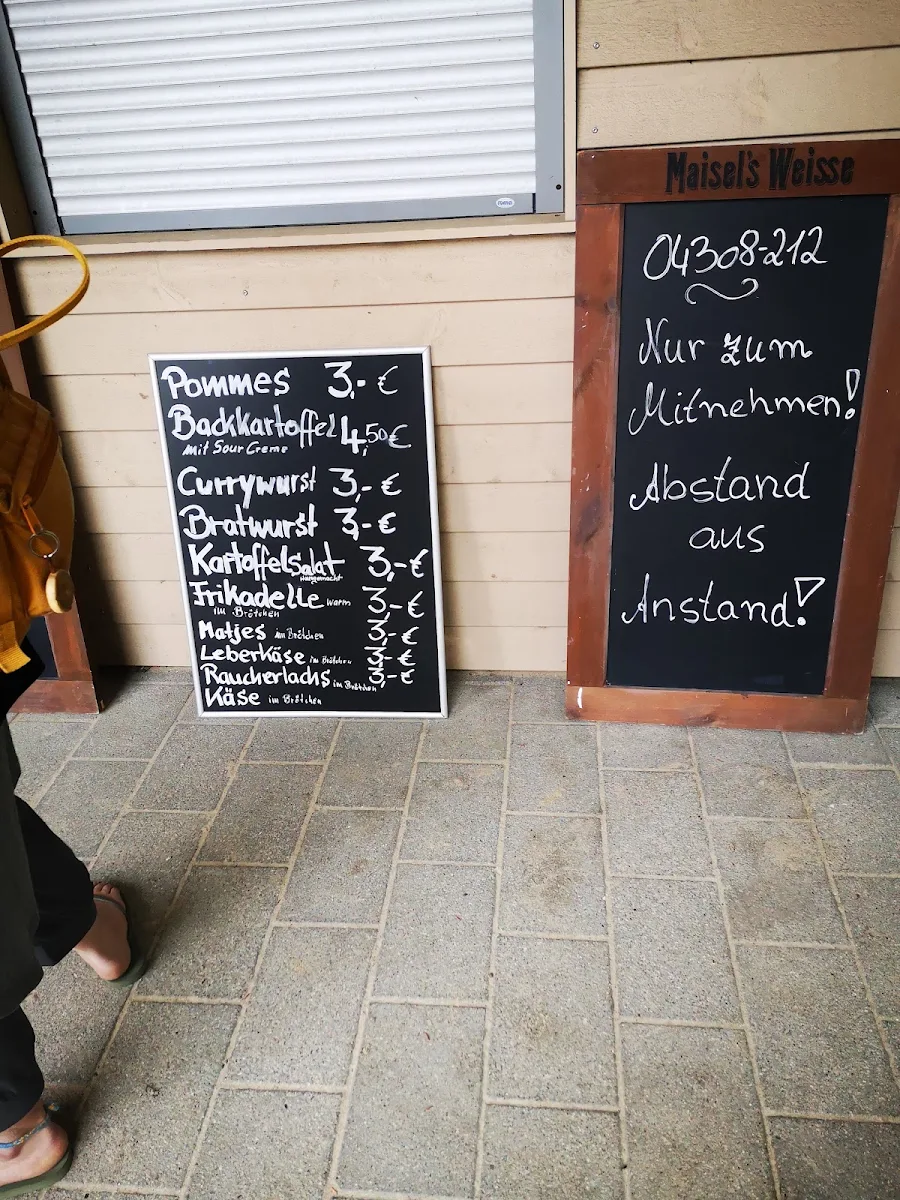 Pommes 3,- €
Backkartoffel 4,50 €
mit Sour Creme
Currywurst 3,- €
Bratwurst 3,- €
Kartoffelsalat 3,- €
Hausgemacht
Frikadelle warm 3,- €
im Brötchen
Matjes im Brötchen 3,- €
Leberkäse im Brötchen 3,- €
Raucherlachs im Brötchen 3,- €
Käse im Brötchen
Maisel's Weisse
04308-212
Nur zum
Mitnehmen!
Abstand
aus
Anstand!
roma